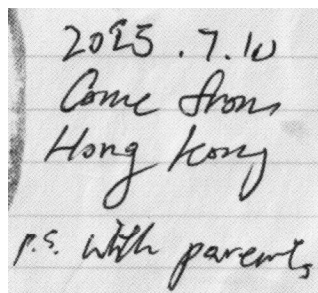 2025.7.10
Come from
Hong Kong
p.s. with parents